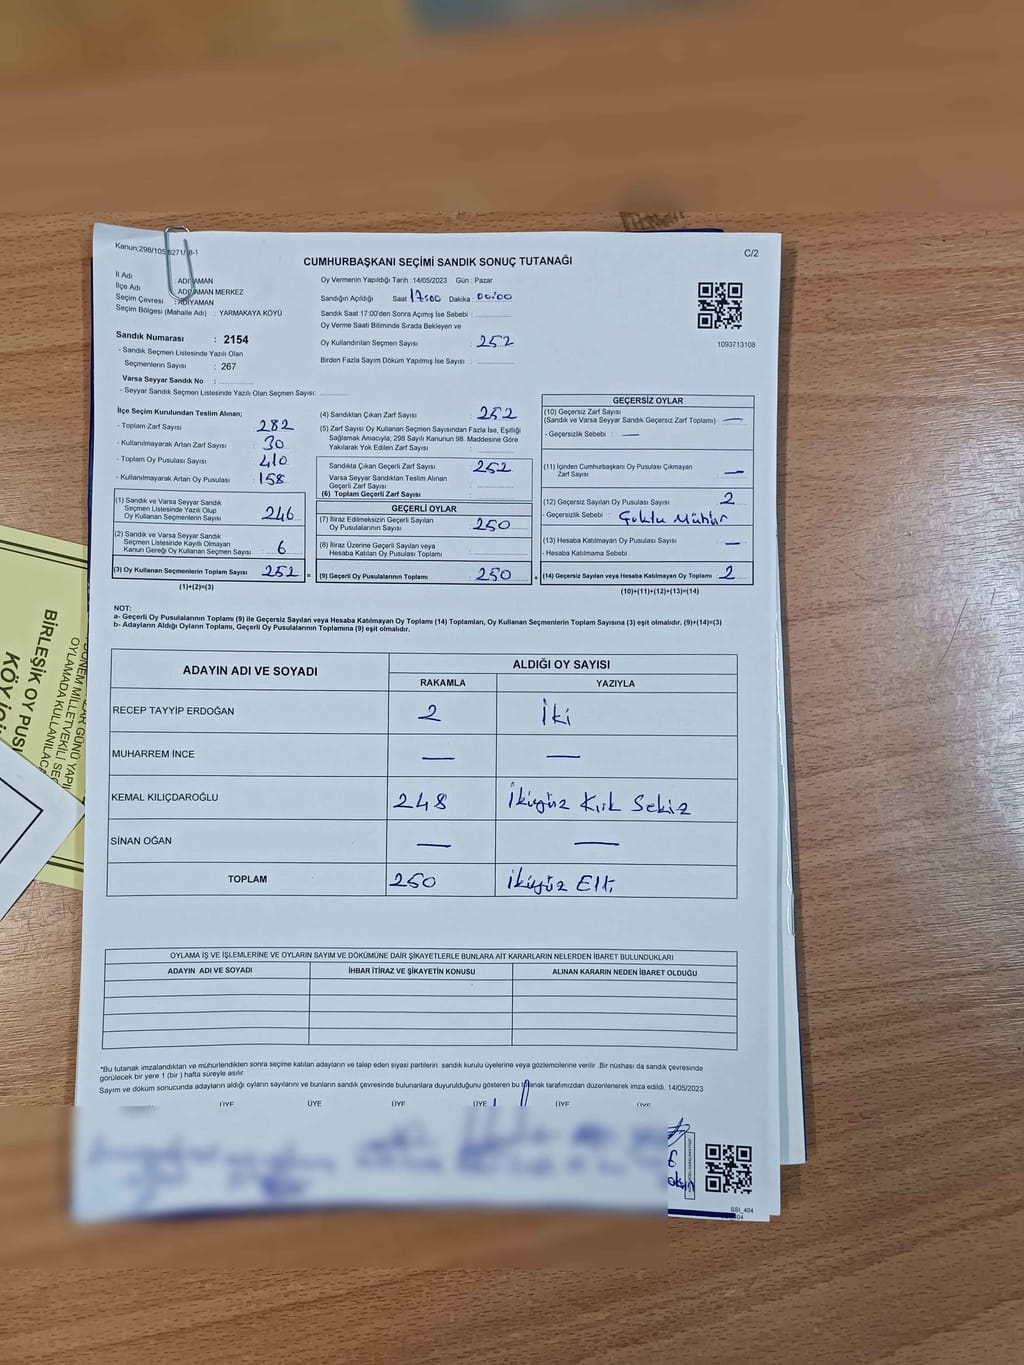 Kanun:298/105 6271/ 8-1
C/2
CUMHURBAŞKANI SEÇİMİ SANDIK SONUÇ TUTANAĞI
İl Adı : ADIYAMAN
İlçe Adı : ADIYAMAN MERKEZ
Seçim Çevresi : ADIYAMAN
Seçim Bölgesi (Mahalle Adı) : YARMAKAYA KÖYÜ
Oy Vermenin Yapıldığı Tarih :14/05/2023 Gün : Pazar
Sandığın Açıldığı Saat 17:00 Dakika : 00:00
Sandık Saat 17:00'den Sonra Açımış İse Sebebi :
Oy Verme Saati Bitiminde Sırada Bekleyen ve
Oy Kullandırılan Seçmen Sayısı : 252
Birden Fazla Sayım Döküm Yapılmış İse Sayısı :
1093713108
Sandık Numarası : 2154
- Sandık Seçmen Listesinde Yazılı Olan
Seçmenlerin Sayısı : 267
Varsa Seyyar Sandık No :
- Seyyar Sandık Seçmen Listesinde Yazılı Olan Seçmen Sayısı:
İlçe Seçim Kurulundan Teslim Alınan;
- Toplam Zarf Sayısı : 282
- Kullanılmayarak Artan Zarf Sayısı : 30
- Toplam Oy Pusulası Sayısı : 410
- Kullanılmayarak Artan Oy Pusulası : 158
(1) Sandık ve Varsa Seyyar Sandık
Seçmen Listesinde Yazılı Olup
Oy Kullanan Seçmenlerin Sayısı 246
(2) Sandık ve Varsa Seyyar Sandık
Seçmen Listesinde Kayıtlı Olmayan
Kanun Gereği Oy Kullanan Seçmen Sayısı 6
(3) Oy Kullanan Seçmenlerin Toplam Sayısı 252 =
(1)+(2)=(3)
(4) Sandıktan Çıkan Zarf Sayısı : 252
(5) Zarf Sayısı Oy Kullanan Seçmen Sayısından Fazla İse, Eşitliği
Sağlamak Amacıyla; 298 Sayılı Kanunun 98. Maddesine Göre
Yakılarak Yok Edilen Zarf Sayısı :
Sandıkta Çıkan Geçerli Zarf Sayısı : 252
Varsa Seyyar Sandıktan Teslim Alınan
Geçerli Zarf Sayısı :
(6) Toplam Geçerli Zarf Sayısı :
GEÇERLİ OYLAR
(7) İtiraz Edilmeksizin Geçerli Sayılan
Oy Pusulalarının Sayısı : 250
(8) İtiraz Üzerine Geçerli Sayılan veya
Hesaba Katılan Oy Pusulası Toplamı :
(9) Geçerli Oy Pusulalarının Toplamı : 250 +
GEÇERSİZ OYLAR
(10) Geçersiz Zarf Sayısı
(Sandık ve Varsa Seyyar Sandık Geçersiz Zarf Toplamı) —
- Geçersizlik Sebebi : —
(11) İçinden Cumhurbaşkanı Oy Pusulası Çıkmayan
Zarf Sayısı —
(12) Geçersiz Sayılan Oy Pusulası Sayısı 2
- Geçersizlik Sebebi : Çoklu Mühür
(13) Hesaba Katılmayan Oy Pusulası Sayısı —
- Hesaba Katılmama Sebebi :
(14) Geçersiz Sayılan veya Hesaba Katılmayan Oy Toplamı 2
(10)+(11)+(12)+(13)=(14)
NOT:
a- Geçerli Oy Pusulalarının Toplamı (9) ile Geçersiz Sayılan veya Hesaba Katılmayan Oy Toplamı (14) Toplamları, Oy Kullanan Seçmenlerin Toplam Sayısına (3) eşit olmalıdır. (9)+(14)=(3)
b- Adayların Aldığı Oyların Toplamı, Geçerli Oy Pusulalarının Toplamına (9) eşit olmalıdır.
ADAYIN ADI VE SOYADI ALDIĞI OY SAYISI
RAKAMLA YAZIYLA
RECEP TAYYİP ERDOĞAN 2 İki
MUHARREM İNCE — —
KEMAL KILIÇDAROĞLU 248 İkiyüz Kırk Sekiz
SİNAN OĞAN — —
TOPLAM 250 İkiyüz Elli
OYLAMA İŞ VE İŞLEMLERİNE VE OYLARIN SAYIM VE DÖKÜMÜNE DAİR ŞİKAYETLERLE BUNLARA AİT KARARLARIN NELERDEN İBARET BULUNDUKLARI
ADAYIN ADI VE SOYADI İHBAR İTİRAZ VE ŞİKAYETİN KONUSU ALINAN KARARIN NEDEN İBARET OLDUĞU
*Bu tutanak imzalandıktan ve mühürlendikten sonra seçime katılan adayların ve talep eden siyasi partilerin sandık kurulu üyelerine veya gözlemcilerine verilir .Bir nüshası da sandık çevresinde
görülecek bir yere 1 (bir ) hafta süreyle asılır.
Sayım ve döküm sonucunda adayların aldığı oyların sayılarını ve bunların sandık çevresinde bulunanlara duyurulduğunu gösteren bu tutanak tarafımızdan düzenlenerek imza edildi. 14/05/2023
ÜYE ÜYE ÜYE ÜYE ÜYE ÜYE
SSI_404
BİRLEŞİK OY PUS